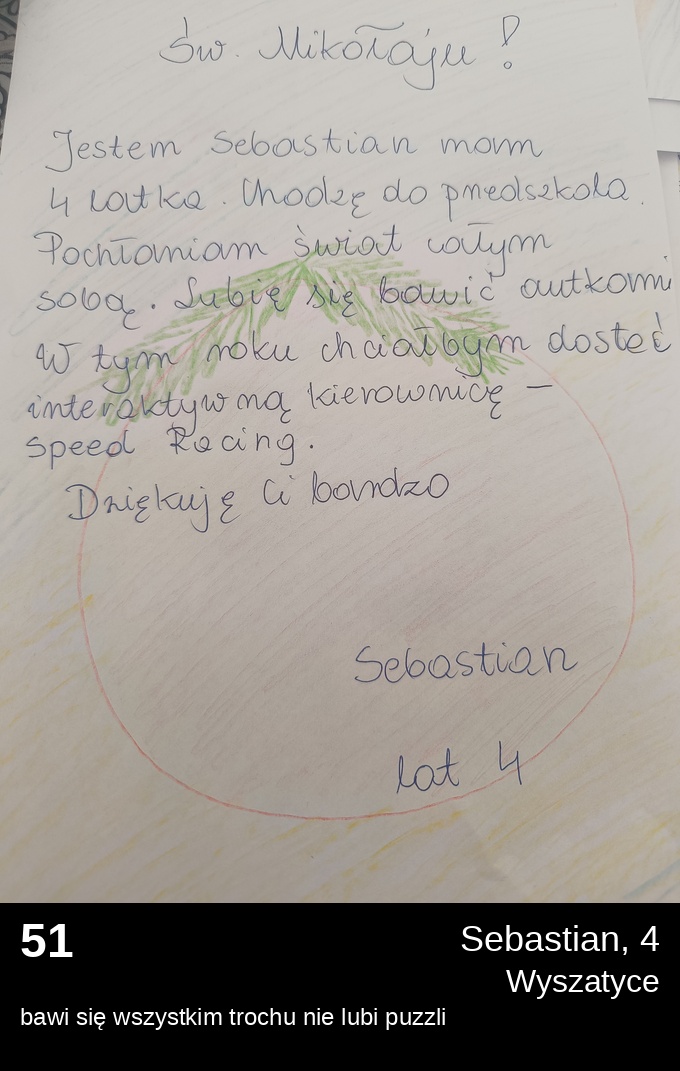 Św. Mikołaju!
Jestem Sebastian mam
4 latka. Chodzę do przedszkola.
Pochłaniam świat całym
sobą. Lubię się bawić autkami
W tym roku chciałbym dosteć
interaktywną kierownicę –
Speed Racing.
Dziękuję Ci bardzo
Sebastian
lat 4
51
Sebastian, 4
Wyszatyce
bawi się wszystkim trochu nie lubi puzzli